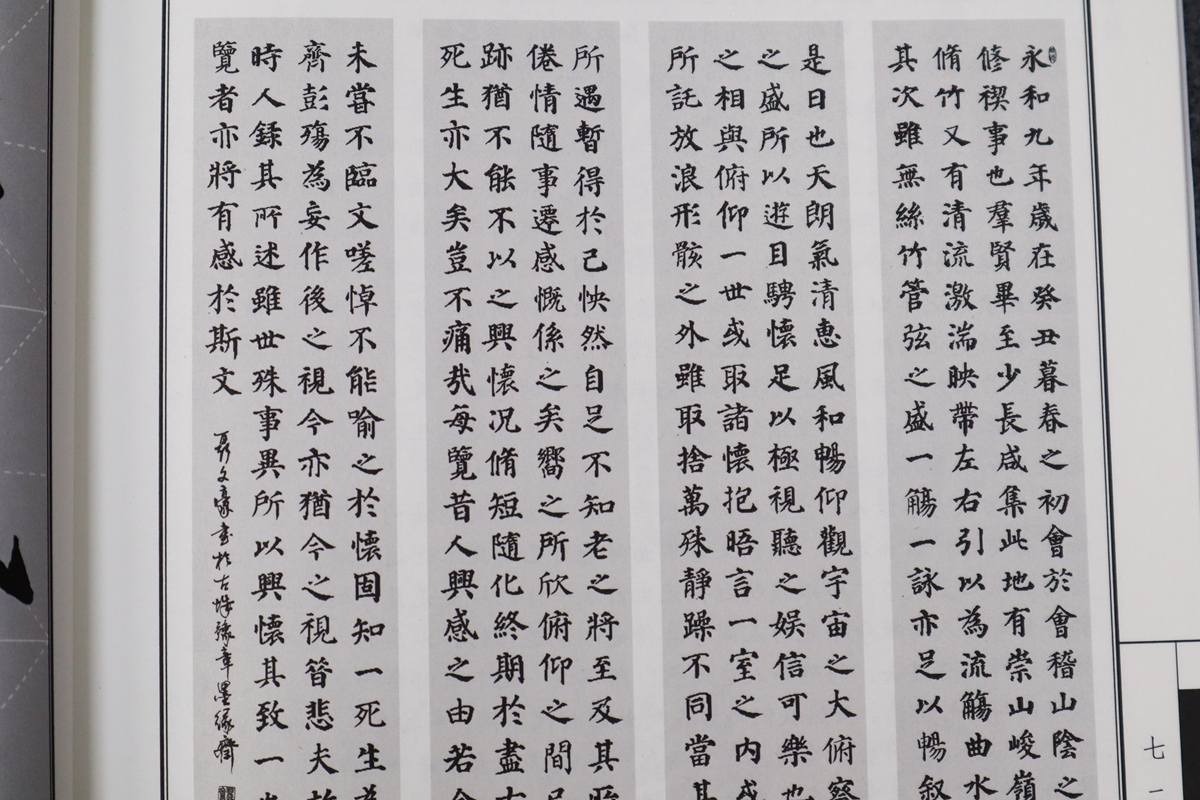 永和九年歲在癸丑暮春之初會於會稽山陰之
修禊事也羣賢畢至少長咸集此地有崇山峻嶺
脩竹又有清流激湍映帶左右引以為流觴曲水
其次雖無絲竹管弦之盛一觴一詠亦足以暢叙
是日也天朗氣清惠風和暢仰觀宇宙之大俯察
之盛所以遊目騁懷足以極視聽之娛信可樂也
之相與俯仰一世或取諸懷抱晤言一室之內或
所託放浪形骸之外雖取捨萬殊靜躁不同當其
所遇暫得於己怏然自足不知老之將至及其所
倦情隨事遷感慨係之矣嚮之所欣俯仰之間
跡猶不能不以之興懷況脩短隨化終期於盡古
死生亦大矣豈不痛哉每覽昔人興感之由若合
未嘗不臨文嗟悼不能喻之於懷固知一死生為
齊彭殤為妄作後之視今亦猶今之視昔悲夫故
時人錄其所述雖世殊事異所以興懷其致一也
覽者亦將有感於斯文
文豪書於古豫章墨緣齋
七一